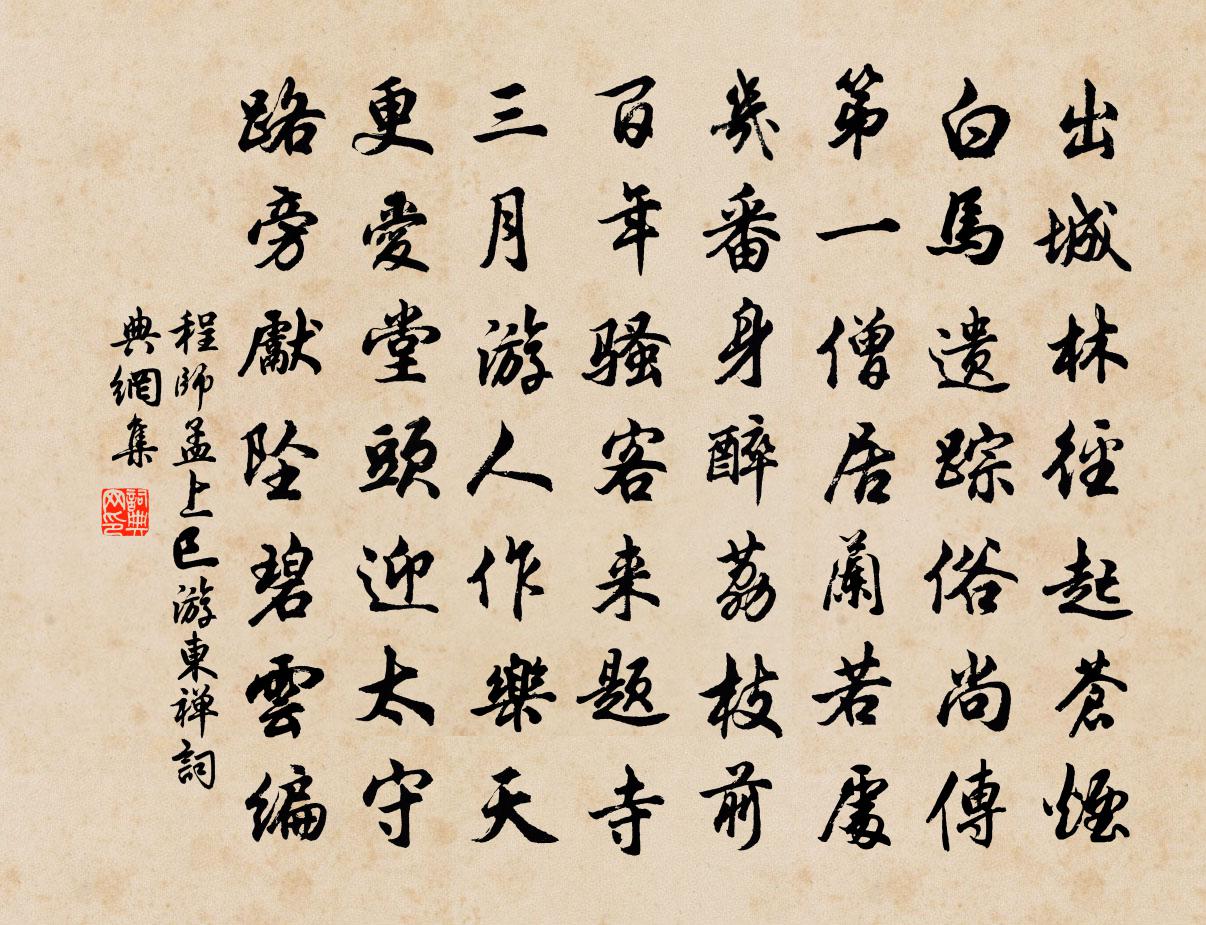 出城林径起蒼煙
白馬遗踪俗尚傳
第一僧居蘭若處
幾番身醉荔枝前
百年騷客来题寺
三月游人作樂天
更愛堂頭迎太守
路旁獻坠碧雲编
程師孟上巳游東禅詞
典網集
詞典網印